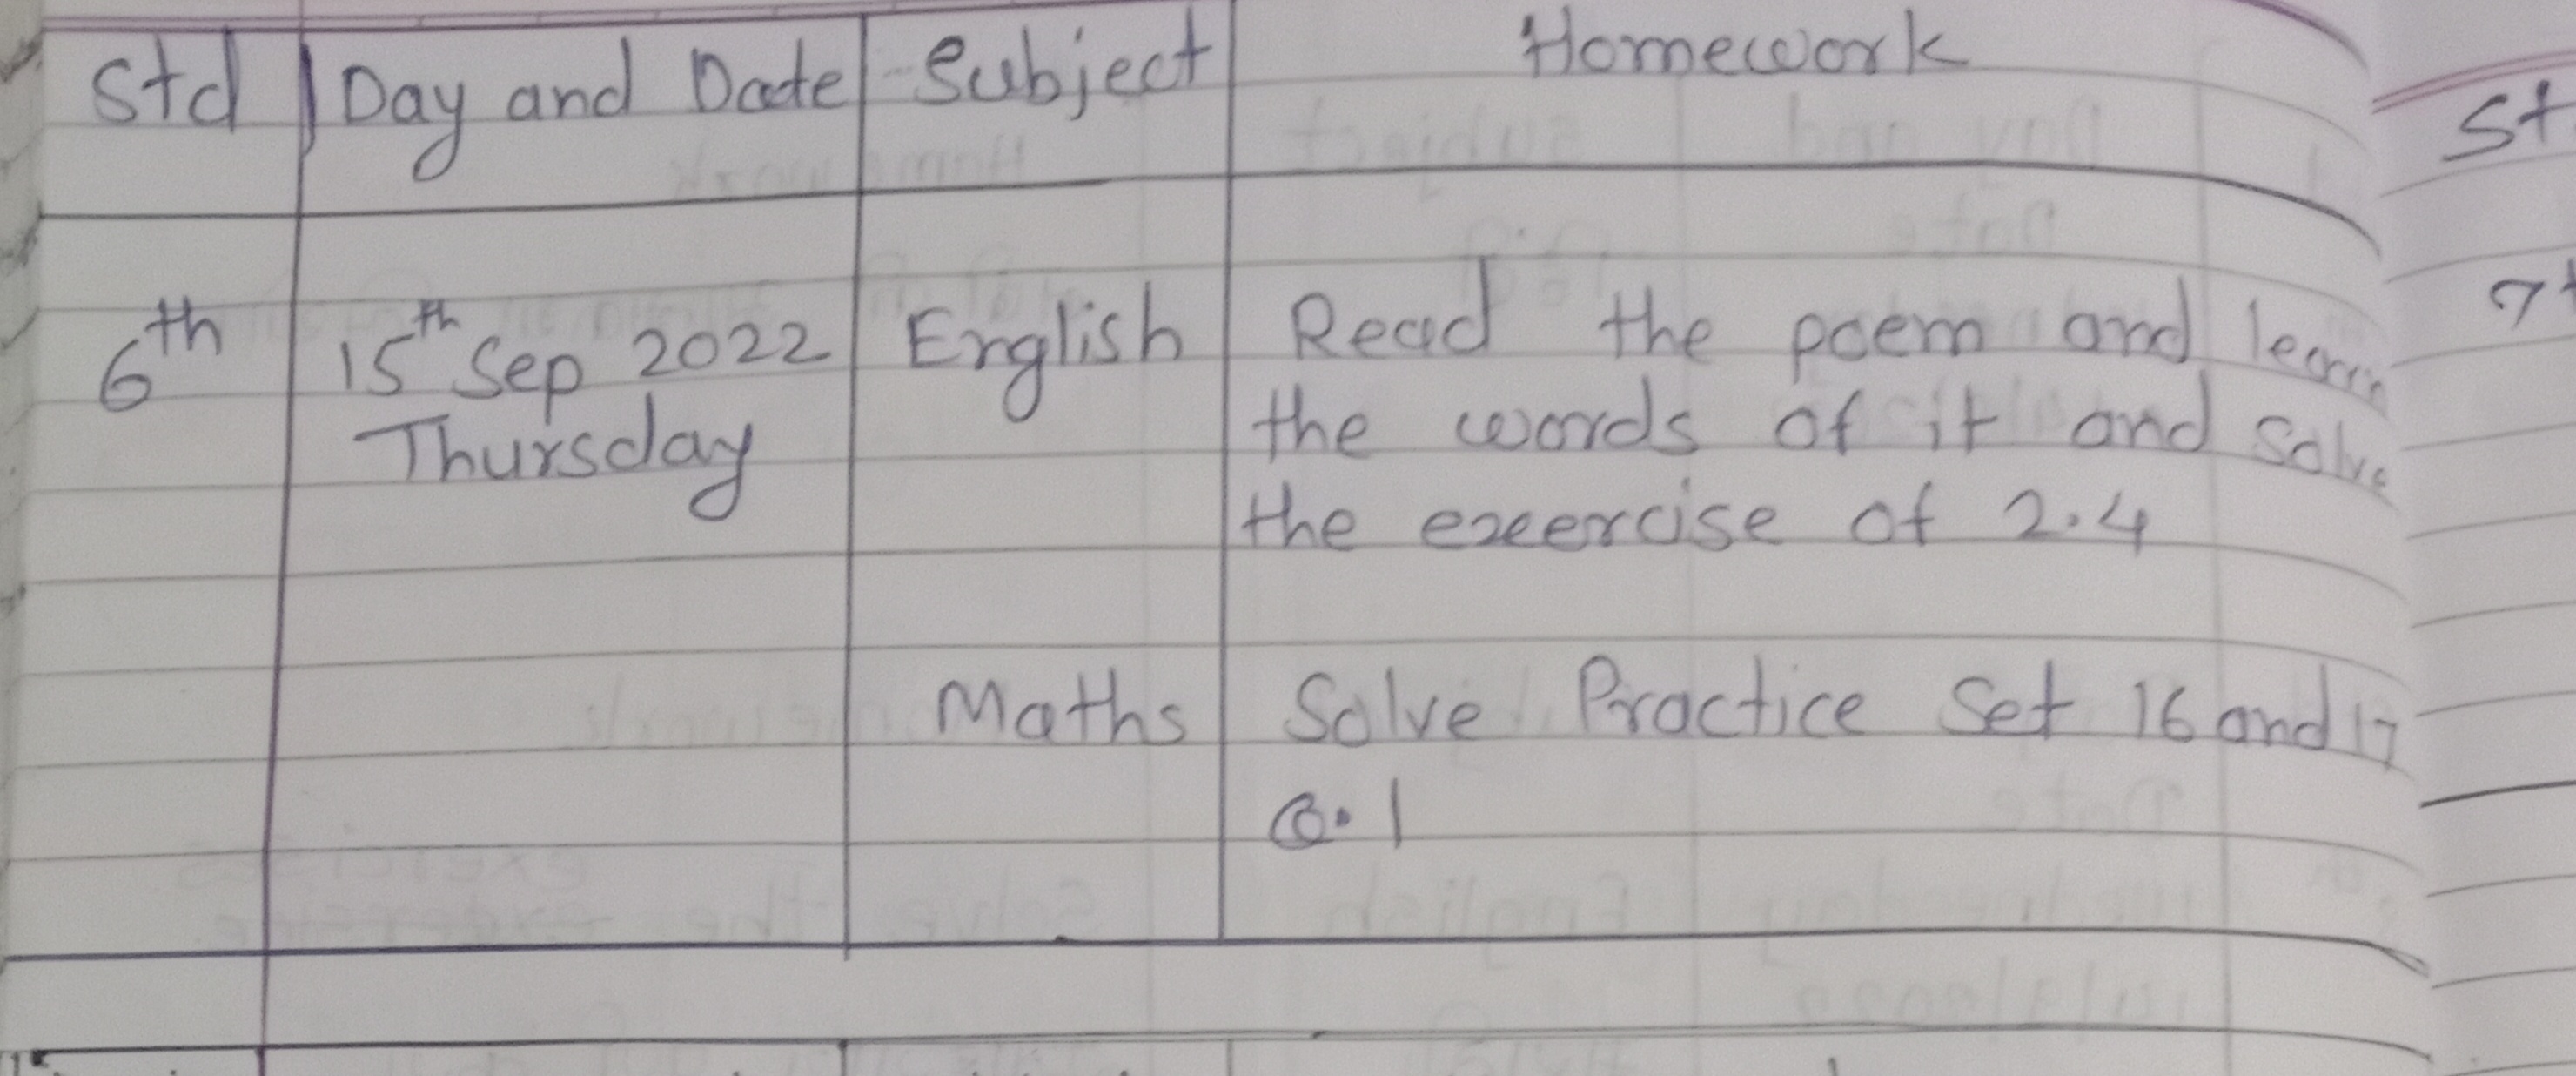 Std Day and Date Subject Homework
6th 15th Sep 2022 English Read the poem and learn
Thursday the words of it and solve
the exeercise of 2.4
Maths Solve Practice Set 16 and 17
Q.1
St
7t